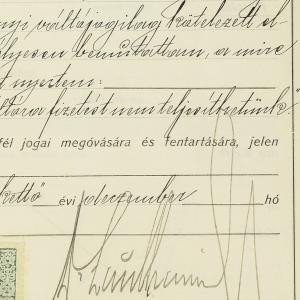 nyi váltójogilag kötelezett el
lyesen bemutattam, a mire
t nyertem:
fizetést nem teljesíthetünk"
fél jogai megóvására és fentartására, jelen
kettő évi deczember hó